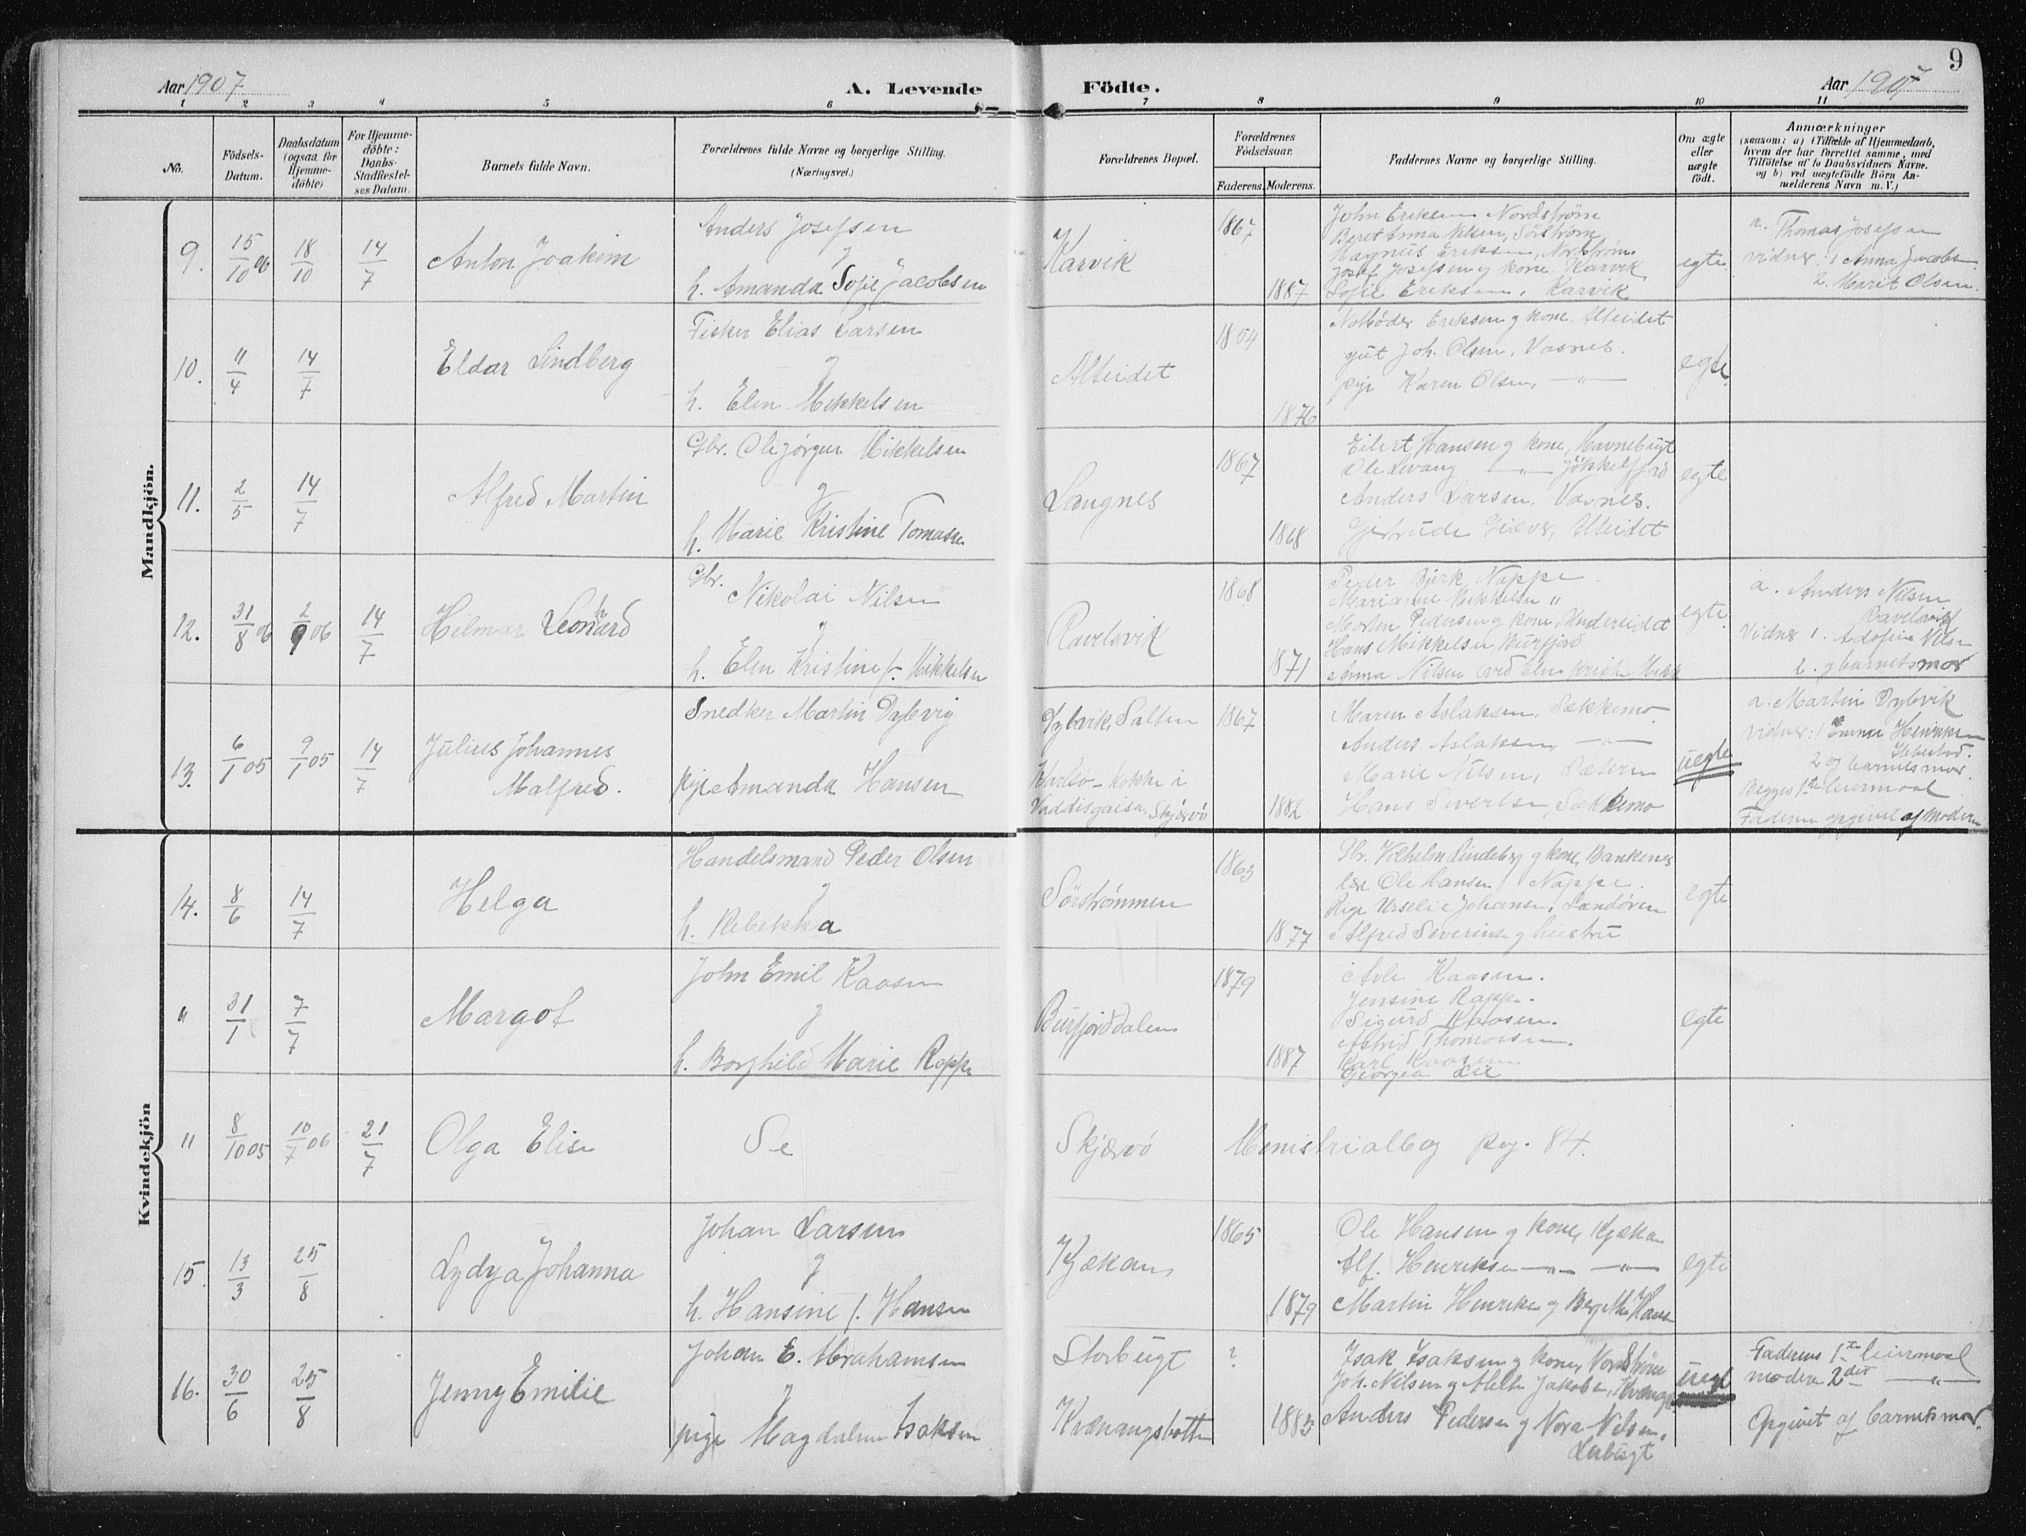 9
Aar 1907
A. Levende Födte.
Aar 1907
1 2 3 4 5 6 7 8 9 10 11
No.
Födsels-Datum.
Daabsdatum (ogsaa for Hjemme-döbte)
For Hjemme-döbte: Daabs-Stadfæstel-ses Datum.
Barnets fulde Navn.
Forældrenes fulde Navne og borgerlige Stilling.
(Næringsvei.)
Forældrenes Bopæl.
Forældrenes Födselsaar.
Faderens. Moderens.
Faddernes Navne og borgerlige Stilling.
Om ægte eller uægte födt.
Anmærkninger
(saasom: a) i Tilfælde af Hjemmedaab,
hvem der har forrettet samme, med
Tilföielse af to Daabsvidners Navne.
og b) ved uægtefödte Börn An-
melderens Navn m. V.)
Mandkjön.
9. 15/10 06 18/10 14/7
Anton Joakim
Anders Josefsen
g
h. Amanda Sofie Jacobsen
Karvik
1867
1887
John Eriksen Nordstrøm
Beret Anna Nilsen, Sørstrøm
Magnus Eriksen, Nordstrøm
Josef Josefsen g kone Karvik
Sofie Eriksen, Karvik
egte
a. Thomas Josefsen
vidner: 1 Anna Jacobs.
2. Marit Olsen.
10. 11/4 14/7
Eldar Lindberg
Fisker Elias Larsen
g
h. Elen Mikkelsen
Alteidet
1854
1876
Notbøder Eriksen g kone, Alteidet
gut Joh. Olsen, Vasnes.
pige Karen Olsen, —"—
egte
11. 2/5 14/7
Alfred Martin
Gbr. Ole Jørgen Mikkelsen
g
h. Marie Kristine Tomasen
Langnes
1867
1868
Eilert Hansen g kone, Havnebugt
Ole Levang —"— Jøkkelfjord
Anders Larsen, Vasnes.
Gertrude Giæver, Alteidet
egte
12. 31/8 06 2/9 06 14/7
Hilmar Leonhard
Gbr. Nikolai Nilsen
"
h. Elen Kristine f. Mikkelsen
Ravelsvik
1868
1871
Peder Bjørk, Nappe
Marianne Mikkelsen "
Morten Pedersen g kone, Undereidet
Hans Mikkelsen, Burfjord
Anna Nilsen
egte
a. Anders Nilsen
Ravelsvik
Vidner 1. Adolfine Nilsen
2. g barnets mor
13. 6/1 05 9/1 05 14/7
Julius Johannes
Malfred.
Snedker Martin Dybvig
pige Amanda Hansen
Dybvik, Salten
kokke i
Vaddisgaisa, Skjærvö
1867
1882
Maren Aslaksen, Sækkemo
Anders Aslaksen, —"—
Marie Nilsen, Sætern
Hans Sivertsen, Sækkemo
uegte
a. Martin Dybvik
vidner: 1 Emma Henriksen
2 og barnets mor.
Begges 1ste leiermaal
Faderen opgivet af moderen
Kvindekjön
14. 8/6 14/7
Helga
Handelsmand Peder Olsen
g
h. Rebekka
Sørstrømmen
1863
1877
Gbr. Vilhelm Lindeberg g kone, Bankenes
lær Ole Hansen, Nappe.
Pige Urselie Johansen, Sandøren
Alfred Siverinsen g hustru
egte
" 31/1 7/7
Margot
John Emil Kaasen
g
h. Borghild Marie Rapp
Burfjorddalen
1879
1887
Atle Kaasen.
Jensine Rapp.
Sigurd Kaasen.
Astrid Thomassen.
Karl Kaasen
Georgea Lie
egte
" 8/10 05 10/7 06 21/7
Olga Elise
Se Skjærvö Menistrialbog pag. 84.
15. 13/3 25/8
Lydya Johanna
Johan Larsen
g
h. Hansine f. Hansen
Kjækan
1865
1879
Ole Hansen g kone, Kjækan
Alf. Henriksen —"— —"—
Martin Henriksen g Bergithe Hans
egte
16. 30/6 25/8
Jenny Emilie
Johan E. Abrahamsen
g
pige Magdalene Isaksen
Storbugt
Kvænangsbotten
?
1883
Isak Isaksen g kone, Nordstrøm
Joh. Nilsen g Jakobsen, Kvænangsb
Anders Pedersen g Nora Nilsen,
Lerbugt
uegt
Faderens 1ste leiermaal
modern 2det —"—
Opgivet af barnets mor.